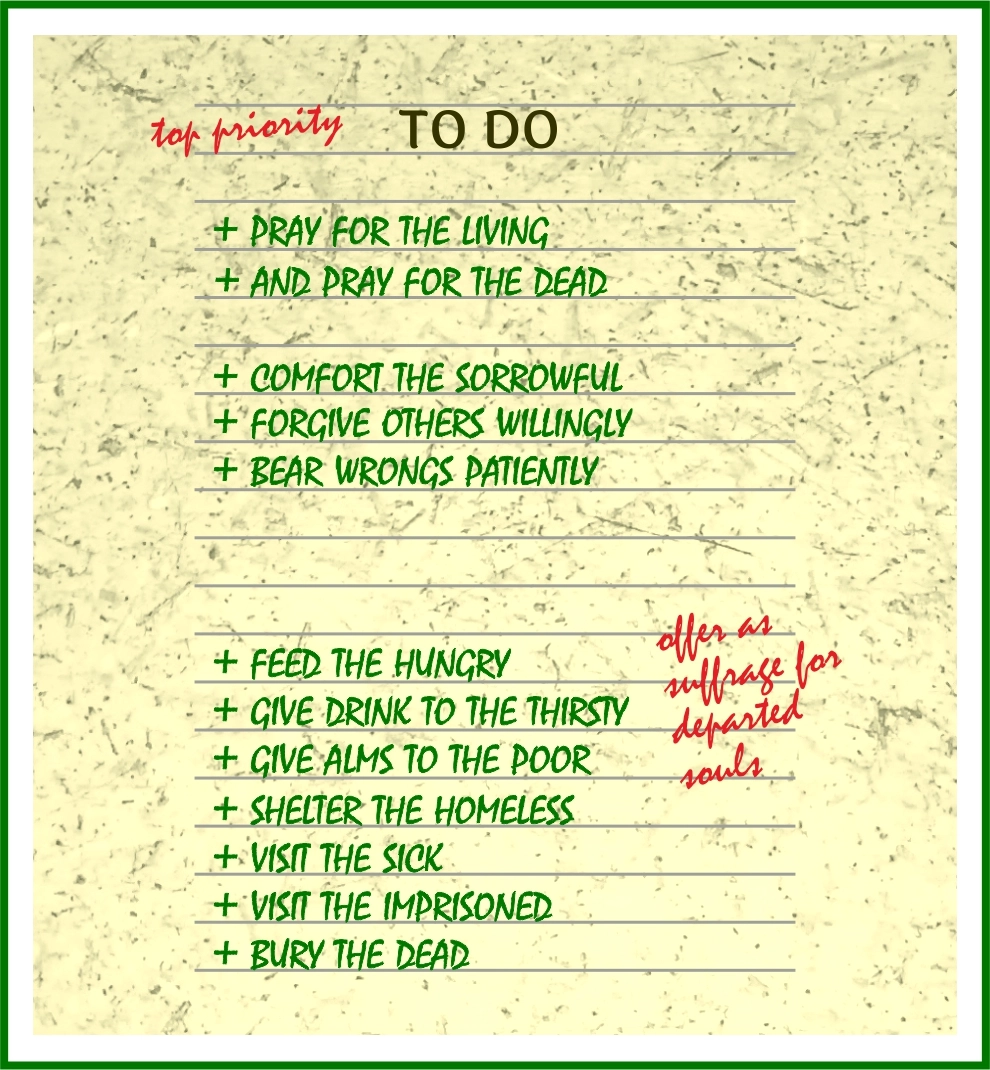 top priority
TO DO
+ PRAY FOR THE LIVING
+ AND PRAY FOR THE DEAD
+ COMFORT THE SORROWFUL
+ FORGIVE OTHERS WILLINGLY
+ BEAR WRONGS PATIENTLY
+ FEED THE HUNGRY
+ GIVE DRINK TO THE THIRSTY
+ GIVE ALMS TO THE POOR
+ SHELTER THE HOMELESS
+ VISIT THE SICK
+ VISIT THE IMPRISONED
+ BURY THE DEAD
offer as
suffrage for
departed
souls